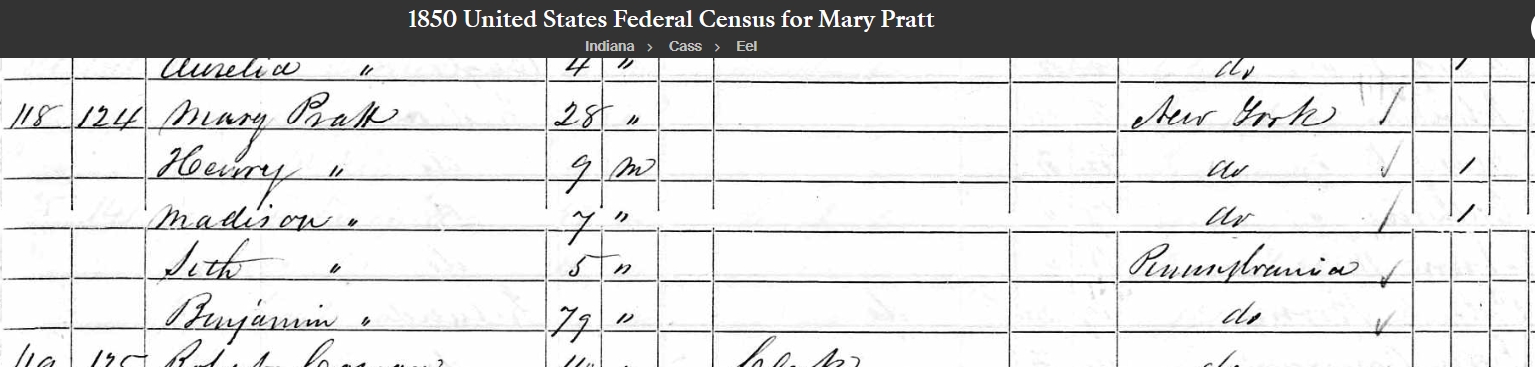 1850 United States Federal Census for Mary Pratt
Indiana > Cass > Eel
Aurelia " 4 " do 1
118 124 Mary Pratt 28 " New York /
Henry " 9 m do ✓ 1
Madison " 7 " do / 1
Seth " 5 " Pennsylvania ✓
Benjamin " 79 " do ✓
119 125 Robert Clerk do